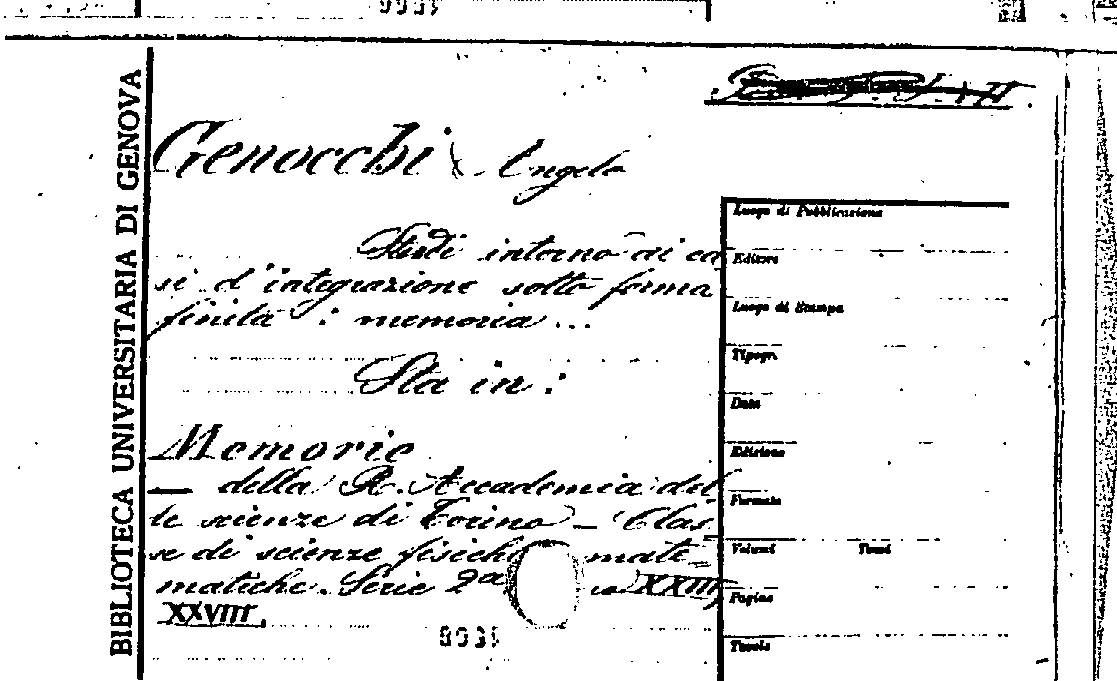 BIBLIOTECA UNIVERSITARIA DI GENOVA
Genocchi Angelo
Studi intorno ai ca
si d'integrazione sotto forma
finita : memoria ...
Sta in :
Memorie
— della R. Accademia del
le scienze di Torino – Clas
se di scienze fisiche mate=
matiche. Serie 2ª XXIII,
XXVIII.
Luogo di Pubblicazione
Editore
Luogo di Stampa
Tipogr.
Data
Edizione
Formato
Volumi Tomi
Pagine
Tavole